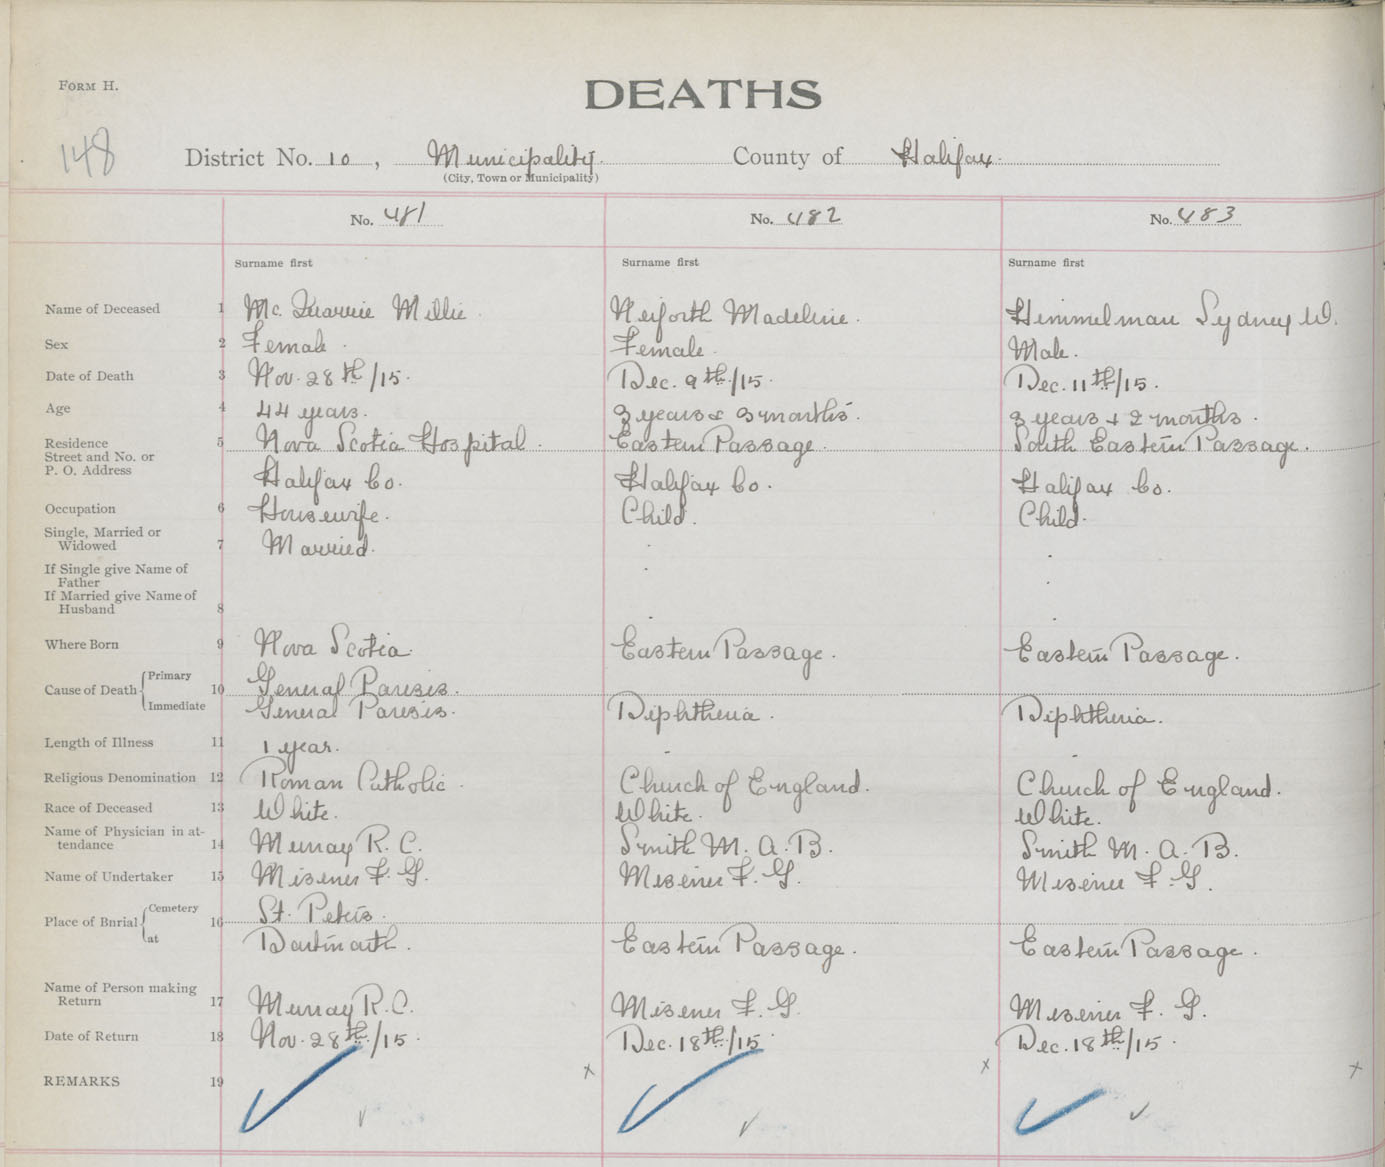 FORM H.
DEATHS
148
District No. 10, Municipality. County of Halifax.
(City, Town or Municipality)
No. 481 No. 482 No. 483
Surname first Surname first Surname first
Name of Deceased 1 Mc. Quarrie Millie. Neiforth Madeline. Himmelman Sydney W.
Sex 2 Female. Female. Male.
Date of Death 3 Nov. 28th/15. Dec. 9th/15. Dec. 11th/15.
Age 4 44 years. 3 years & 3 months. 3 years & 2 months.
Residence 5 Nova Scotia Hospital. Eastern Passage. South Eastern Passage.
Street and No. or
P. O. Address Halifax Co. Halifax Co. Halifax Co.
Occupation 6 Housewife. Child. Child.
Single, Married or
Widowed 7 Married.
If Single give Name of
Father
If Married give Name of
Husband 8
Where Born 9 Nova Scotia. Eastern Passage. Eastern Passage.
Cause of Death 10 Primary General Paresis.
Immediate General Paresis. Diphtheria. Diphtheria.
Length of Illness 11 1 year.
Religious Denomination 12 Roman Catholic. Church of England. Church of England.
Race of Deceased 13 White. White. White.
Name of Physician in at-
tendance 14 Murray R. C. Smith M. A. B. Smith M. A. B.
Name of Undertaker 15 Misener F. G. Misener F. G. Misener F. G.
Place of Burial 16 Cemetery St. Peters.
at Dartmouth. Eastern Passage. Eastern Passage.
Name of Person making
Return 17 Murray R. C. Misener F. G. Misener F. G.
Date of Return 18 Nov. 28th/15. Dec. 18th/15 Dec. 18th/15.
REMARKS 19